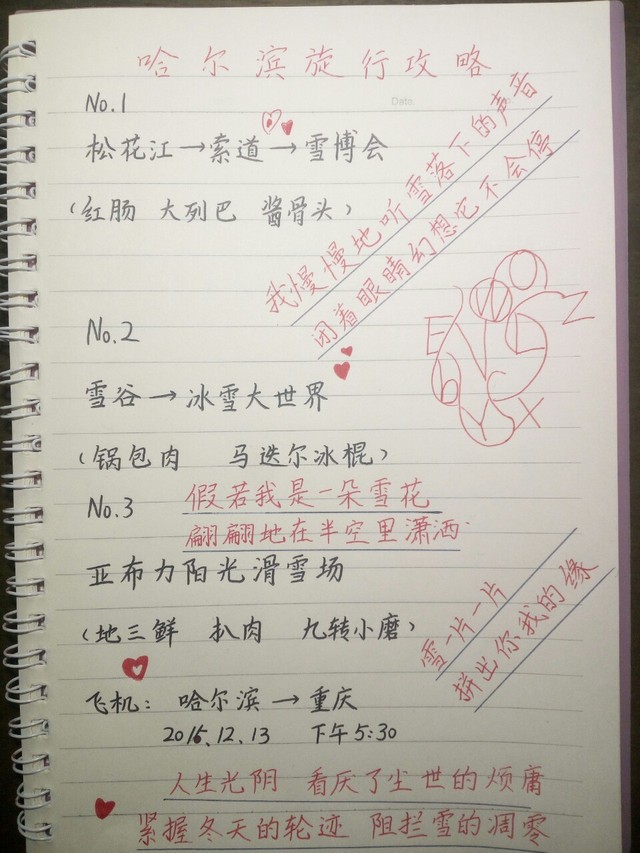 哈尔滨旅行攻略
No.1
Date
松花江→索道→雪博会
(红肠 大列巴 酱骨头)
我慢慢地听雪落下的声音
闭着眼睛幻想它不会停
No.2
雪谷→冰雪大世界
(锅包肉 马迭尔冰棍)
No.3
假若我是一朵雪花
翩翩地在半空里潇洒
亚布力阳光滑雪场
(地三鲜 扒肉 九转小磨)
雪一片一片
拼出你我的缘
飞机: 哈尔滨→重庆
2016.12.13 下午5:30
人生光阴 看厌了尘世的烦庸
紧握冬天的轮迹 阻拦雪的凋零